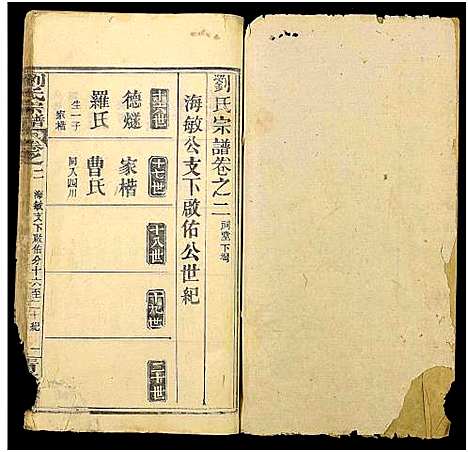 劉氏宗譜卷之二 祠堂下灣
海敏公支下啟佑公世紀
十六世
德燧
羅氏
生一子
家楷
十七世
家楷
曹氏
同入四川
十八世
十九世
二十世
劉氏宗譜 卷之二 海敏支下啟佑分十六至二十紀 一